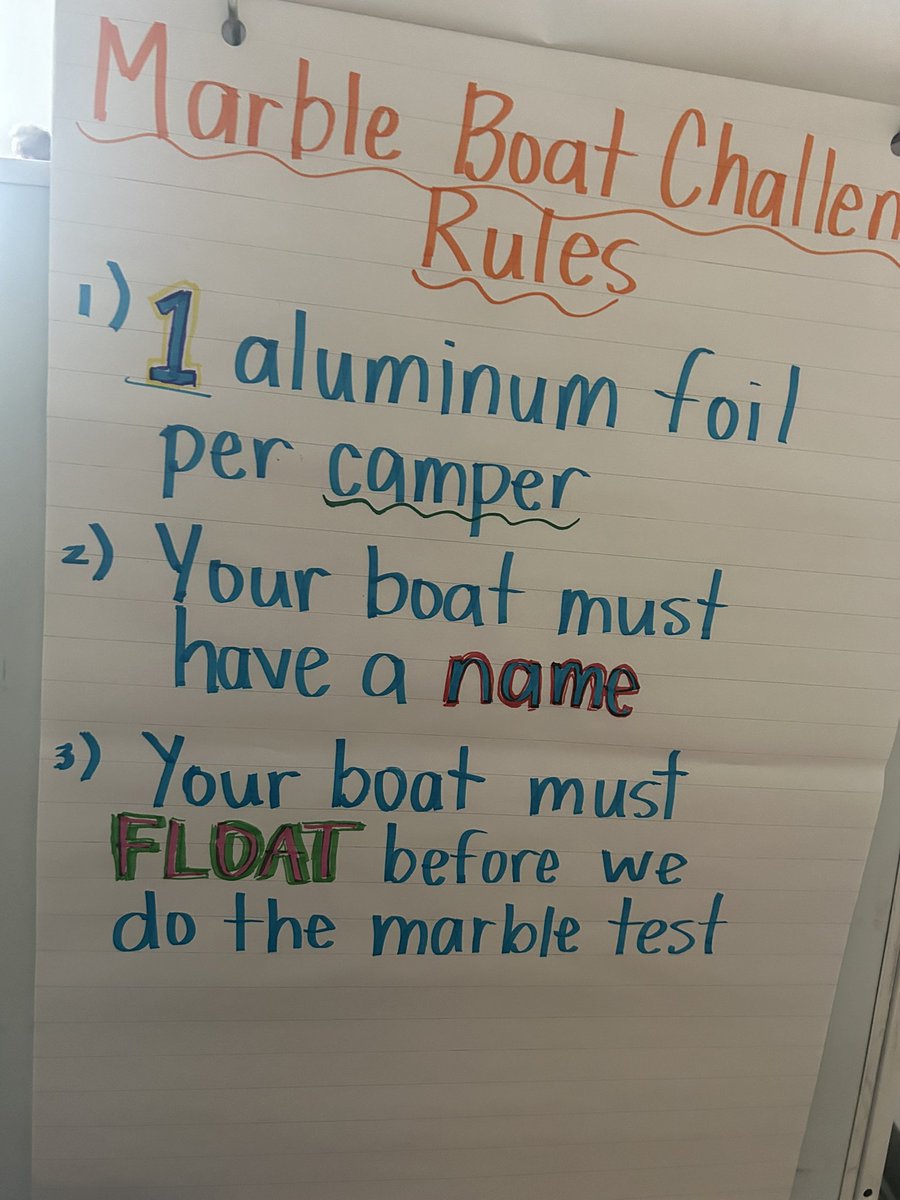 Marble Boat Challen
Rules
1) 1 aluminum foil
per camper
2) Your boat must
have a name
3) Your boat must
FLOAT before we
do the marble test